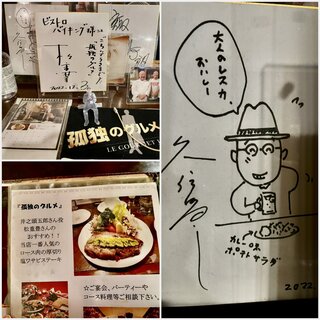 ビストロ
バイキング様江
孤独のグルメ
LE GOURMET
『孤独のグルメ』
井之頭五郎さん役
松重豊さんの
おすすめ！！
当店一番人気の
ロース肉の厚切り
塩ワサビステーキ
☆ご宴会、パーティーや
コース料理等ご相談下さい。
大人のレスカ、
おいしー
カレー味
ポテトサラダ
2022